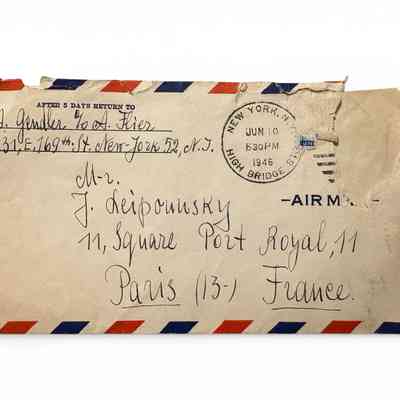 AFTER 5 DAYS RETURN TO
J. Gendler c/o A. Kier
31, E. 169th St. New-York 52, N.Y.
NEW YORK, N.Y.
JUN 10
630PM
1946
HIGH BRIDGE STA.
-AIR M
M-r.
J. Leipounsky
11, Square Port Royal, 11
Paris (13-) France.